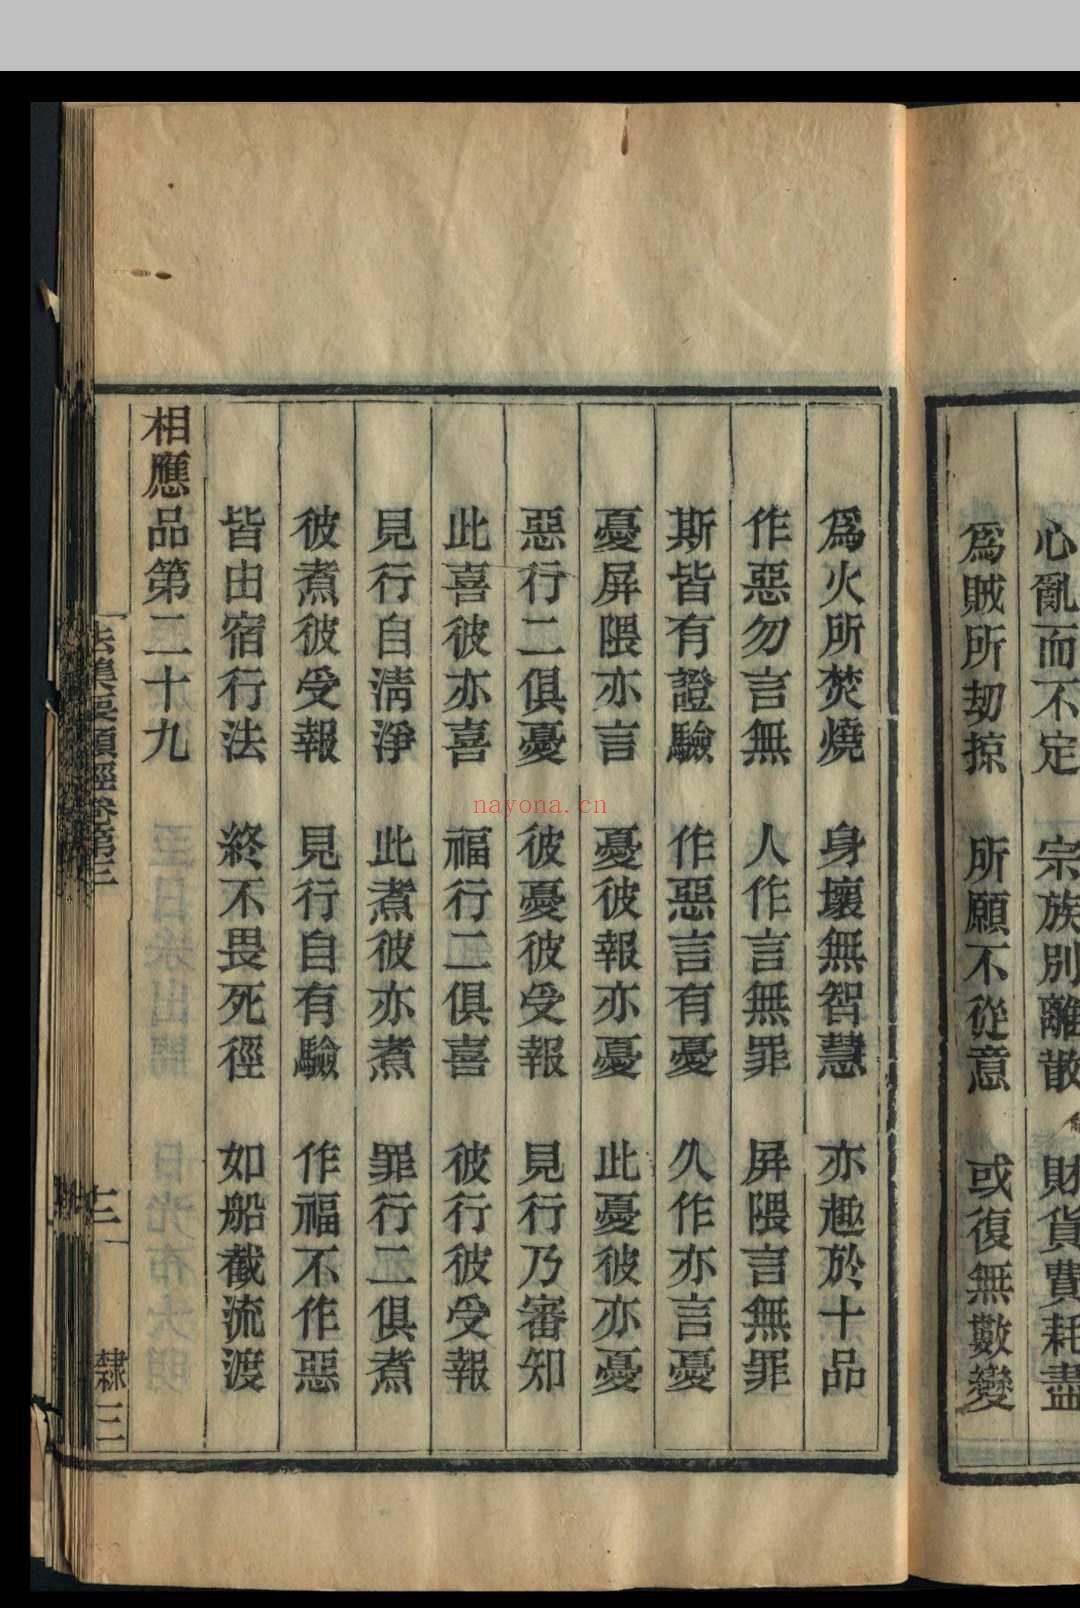 心亂而不定　宗族別離散　財貨費耗盡
爲賊所劫掠　所願不從意　或復無數變
爲火所焚燒　身壞無智慧　亦趣於十品
作惡勿言無　人作言無罪　屏隈言無罪
斯皆有證驗　作惡言有憂　久作亦言憂
憂屏隈亦言　憂彼報亦憂　此憂彼亦憂
惡行二俱憂　彼憂彼受報　見行乃審知
此喜彼亦喜　福行二俱喜　彼行彼受報
見行自淸淨　此煮彼亦煮　罪行二俱煮
彼煮彼受報　見行自有驗　作福不作惡
皆由宿行法　終不畏死徑　如船截流渡
相應品第二十九
法集要頌經卷第三　隸三
nayona.cn